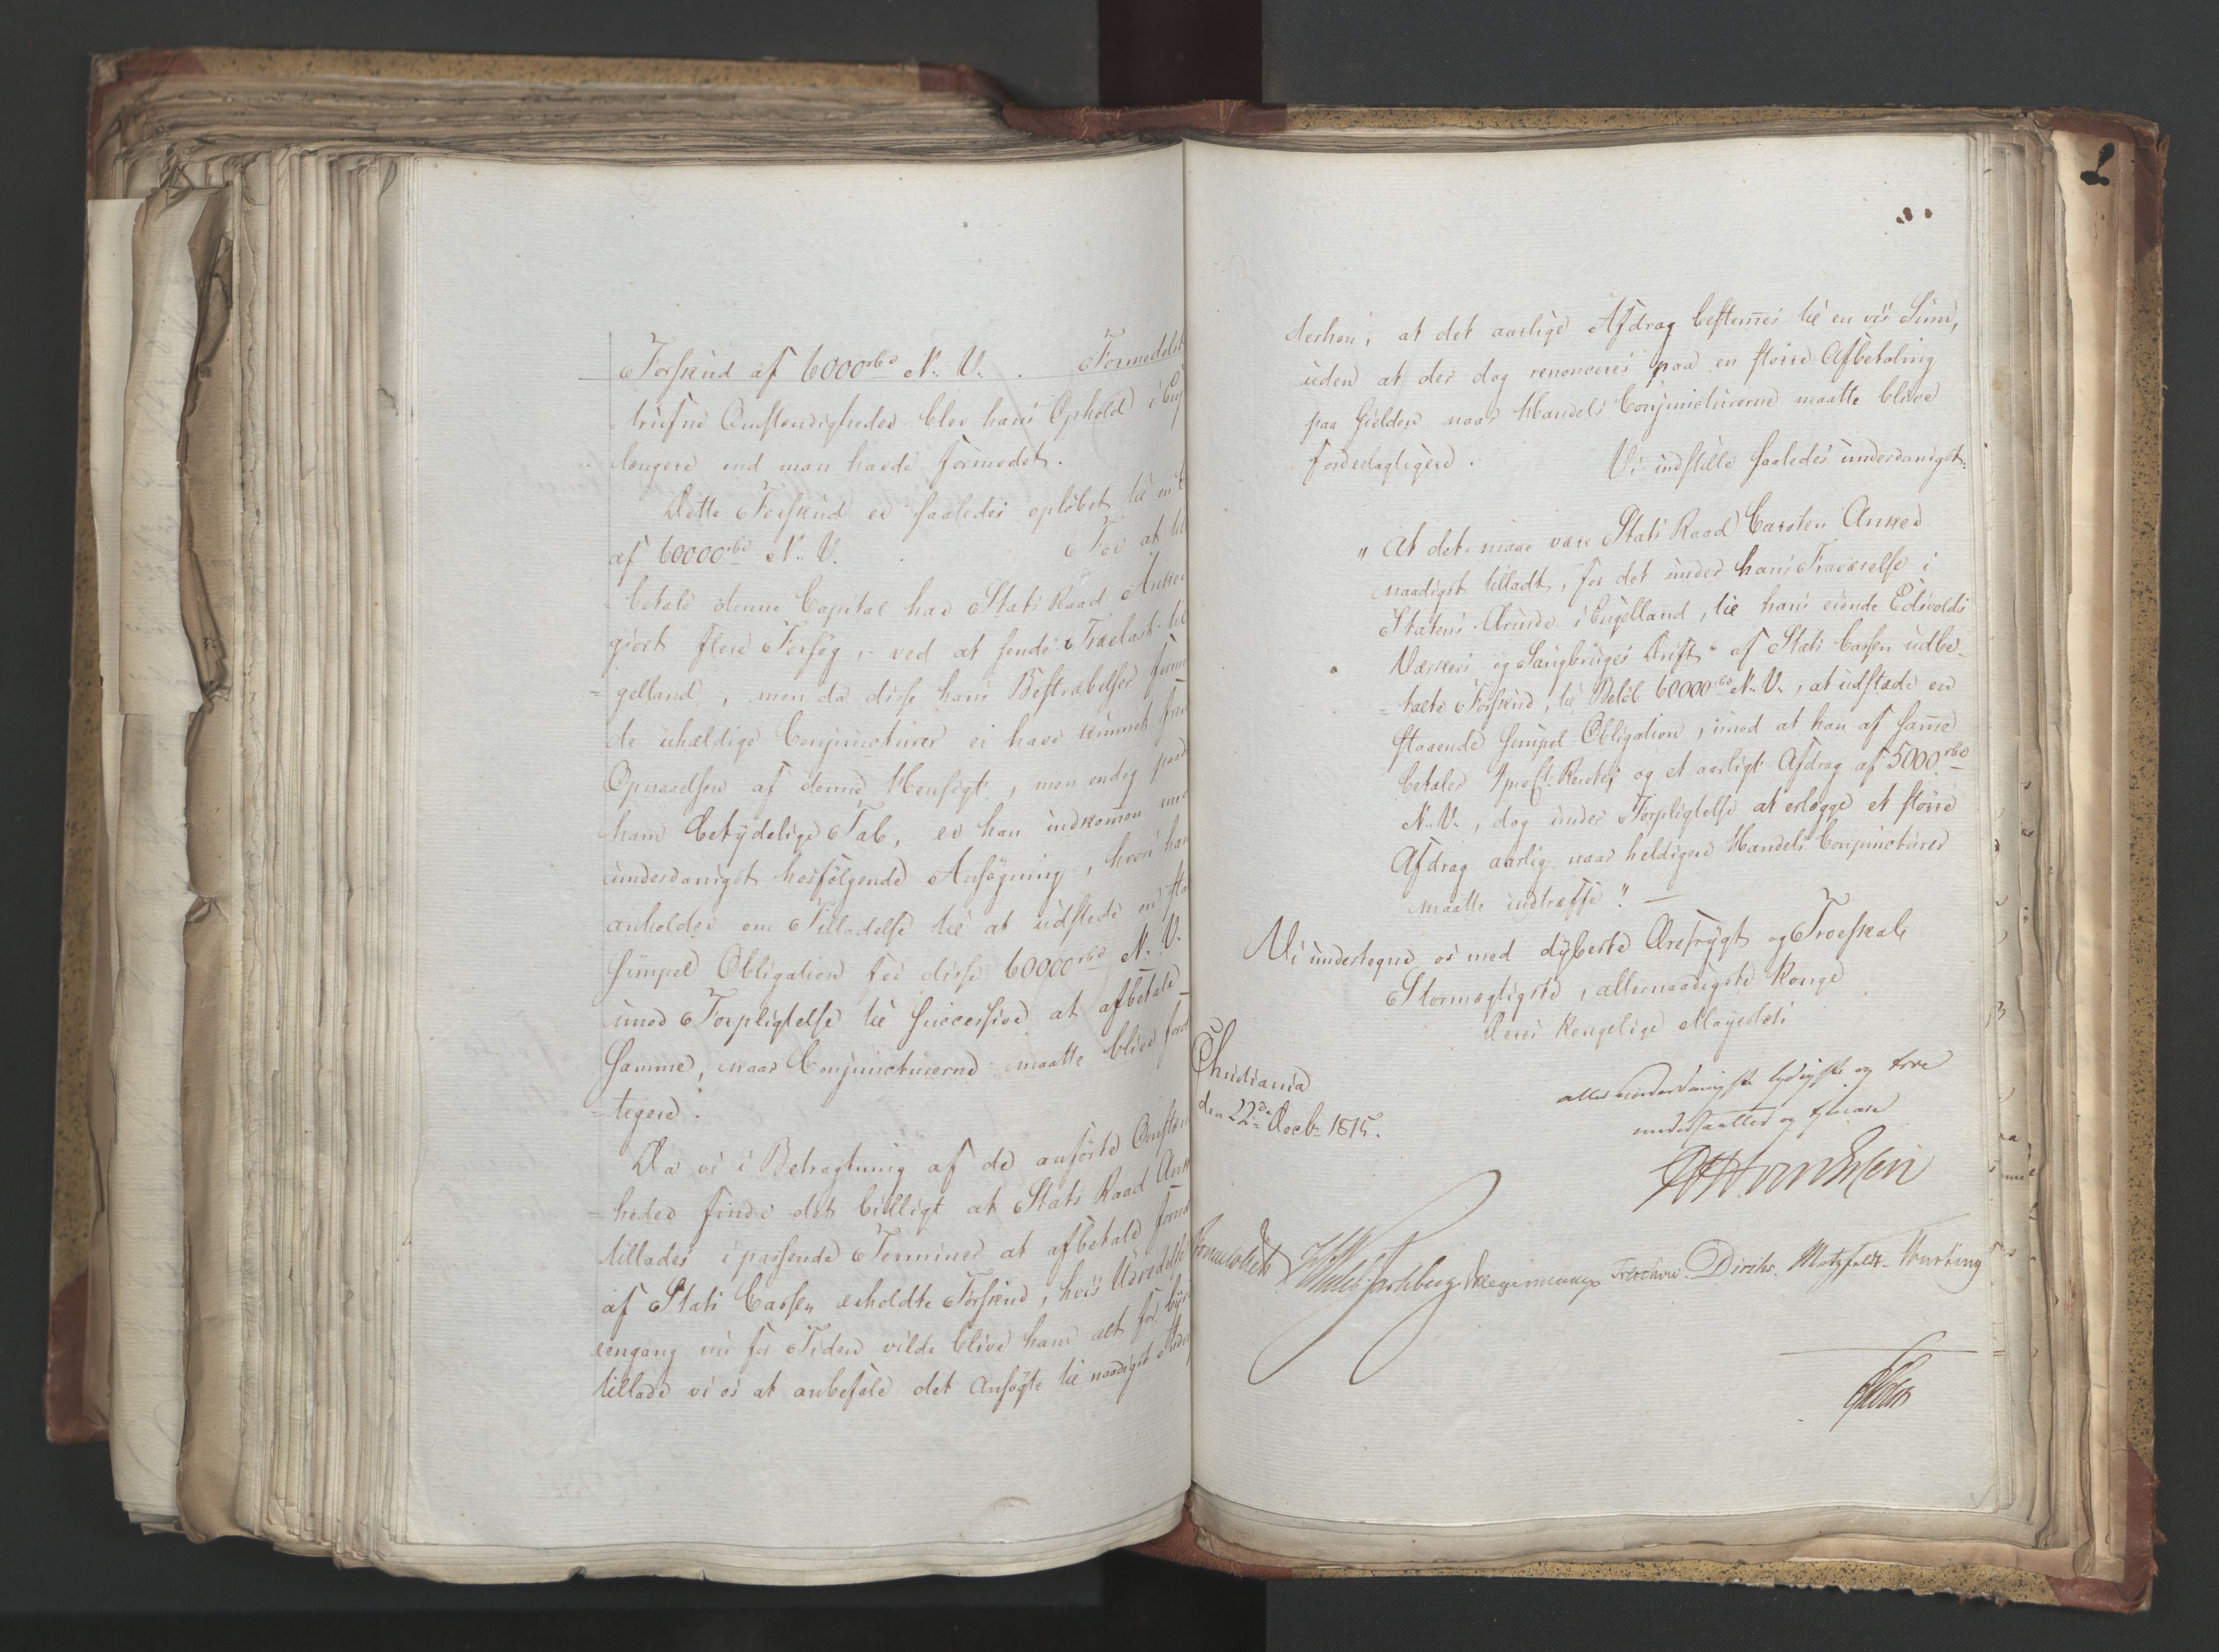 Forskud af 6000 rbd N. V. . Formedelst
trufne Omstændigheder blev hans Ophold i Eng
længere end man havde formodet.
Dette Forskud er saaledes opløbet til en
af 60000 rbd N. V. For at til
betale denne Capital har Stats Raad Anker
giort flere Forsøg, ved at sende Trælast til
=gelland, men da disse hans Bestræbelser forme
de uheldige Conjuncturer ei have kunnet
Opnaaelsen af denne Hensigt, men endog
ham betydelige Tab, er han indkommen
underdanigst hosfølgende Ansøgning, hvori han
anholder om Tilladelse til at udstede en
simpel Obligation for disse 60000 rbd N. V.
imod Forpligtelse til successive at afbetale
samme, naar Conjuncturerne maatte blive ford
=tigere.
Da vi i Betragtning af de anførte Omstæn
=heder finde det billigt at Stats Raad Ank
tillades i passende Terminer at afbetale
af Stats Cassen erholdte Forskud, hvis Udredelse
eengang nu for Tiden vilde blive ham alt for
tillade vi os at anbefale det Ansøgte til naadigst
derhen, at det aarlige Afdrag bestem̄es til en vis Sum,
uden at der dog renonceres paa en større Afbetaling
paa Gielden naar Handels Conjuncturerne maatte blive
fordeelagtigere. Vi indstille saaledes underdanigst:
"At det maae være Stats Raad Carsten Anker
naadigst tilladt, for det under hans Fraværelse i
Statens Ærinde i Engelland, til hans eiende Edsvolds
Værkers og Saugbruges Drift af Stats Cassen udbe-
=talte Forskud, til Beløb 60000 rbd N. V., at udstæde en
staaende simpel Obligation, imod at han af sam̄e
betaler 4 proCt. Renter og et aarligt Afdrag af 5000 rbd
N. V., dog under Forpligtelse at erlægge et større
Afdrag aarlig naar heldigere Handels Conjuncturer
maatte indtræffe". —
Vi undertegne os med dybeste Ærefrygt og Troeskab
Stormægtigste, allernaadigste Konge
Deres Kongelige Mayestæts
Christiania
den 22de Decbr 1815.
allerunderdanigste lydigste og troe
undersaatter og tienere
Sommerhielm Wedel Jarlsberg Hegermann Treschow. Diriks. Motzfeldt.